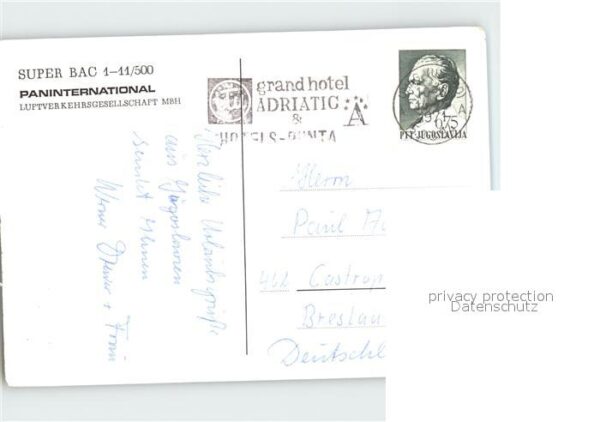 SUPER BAC 1-11/500
PANINTERNATIONAL
LUFTVERKEHRSGESELLSCHAFT MBH
grand hotel
ADRIATIC
&
HOTELS-PUNTA
A
1971
0.75
PTT JUGOSLAVIJA
Herzliche Urlaubsgrüße
aus Jugoslawien
sendet Ihnen
Werner + Frau
Herrn
Paul
462 Castrop
Breslau
Deutschl
privacy protection
Datenschutz